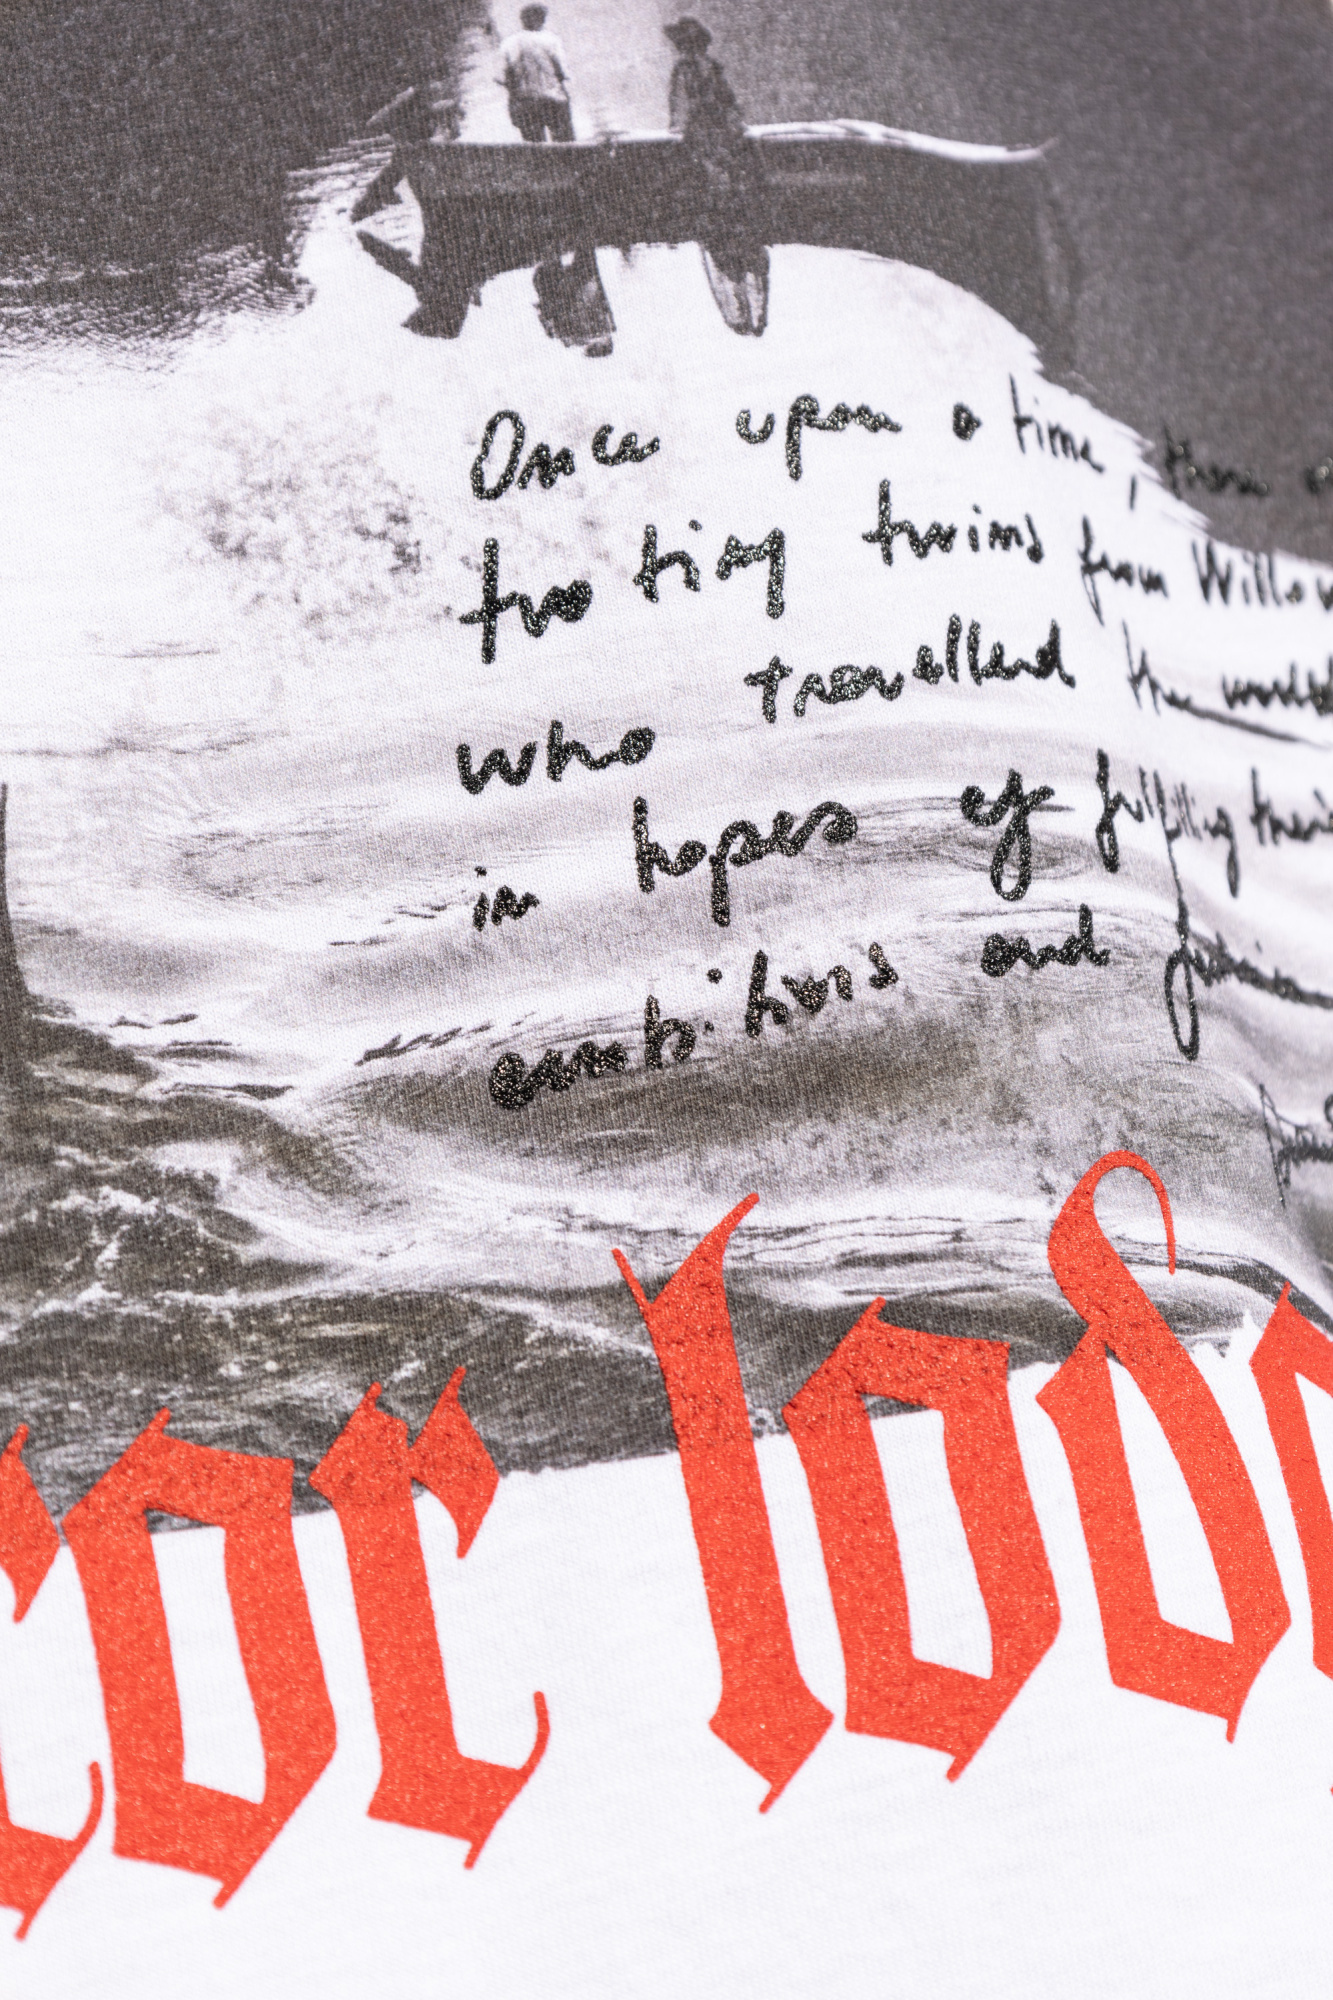 Once upon a time, there
two tiny twins from Willow
who travelled the world
in hopes of fulfilling their
ambitions and
ror lod